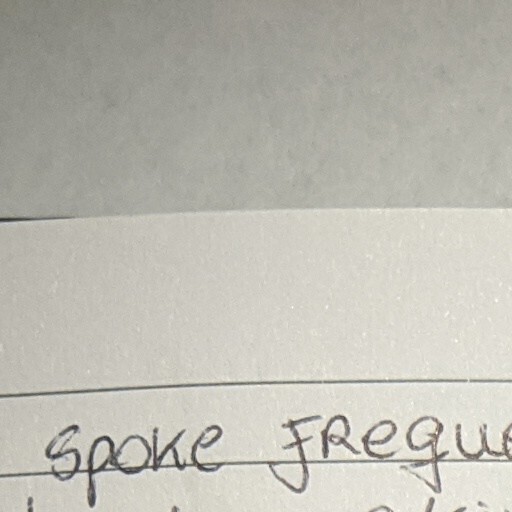 Spoke freque